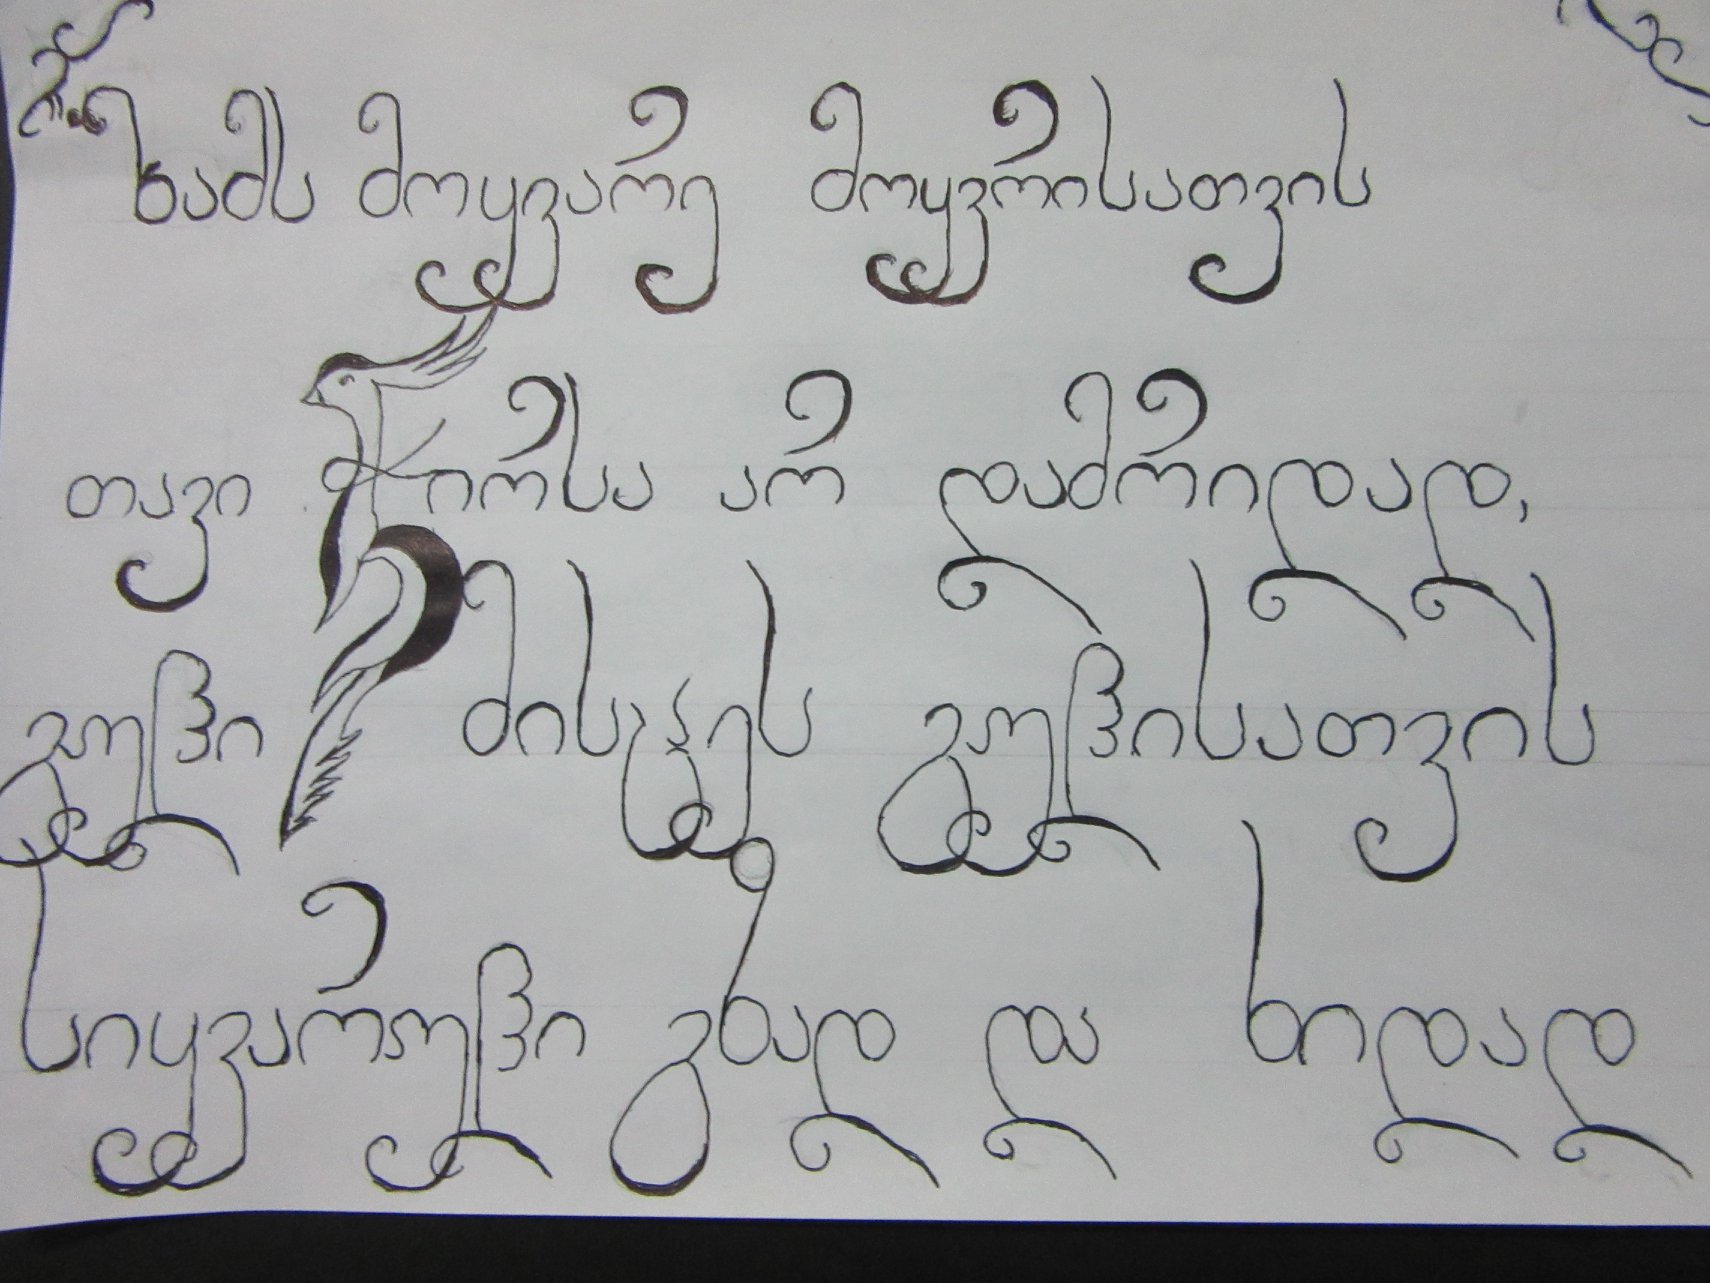 ხამს მოყვარე მოყვრისათვის
თავი ჭირსა არ დამრიდად,
გული მისცეს გულისათვის
სიყვარული გზად და ხიდად